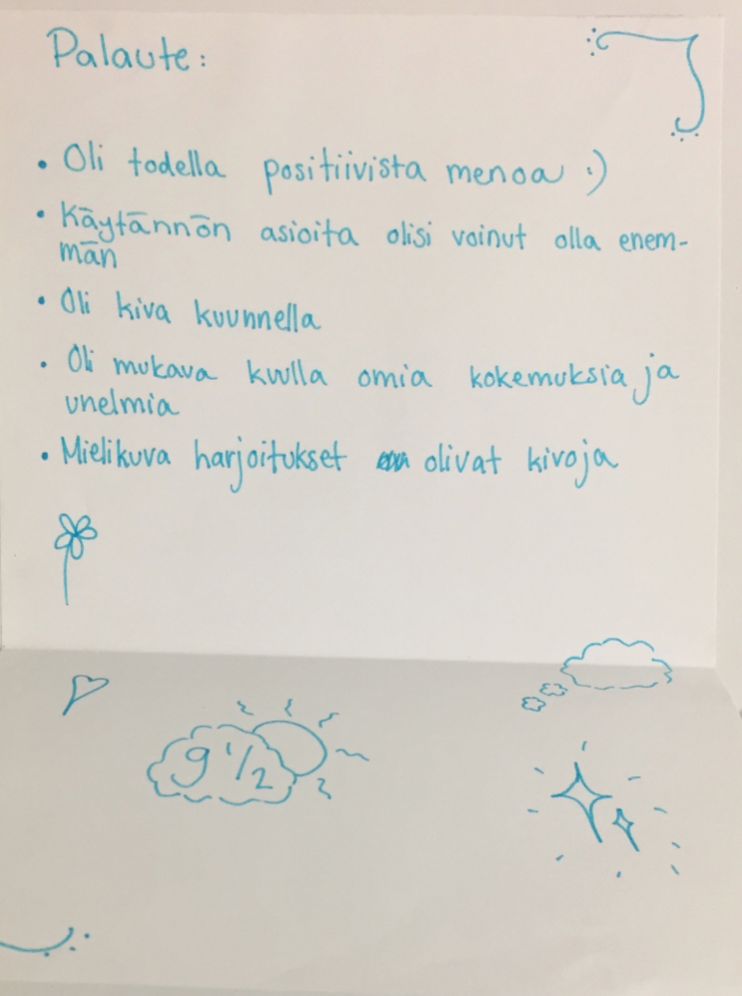 Palaute:
• Oli todella positiivista menoa :)
• Käytännön asioita olisi voinut olla enem-
män
• Oli kiva kuunnella
• Oli mukava kuulla omia kokemuksia ja
unelmia
• Mielikuva harjoitukset olivat kivoja
9 1/2